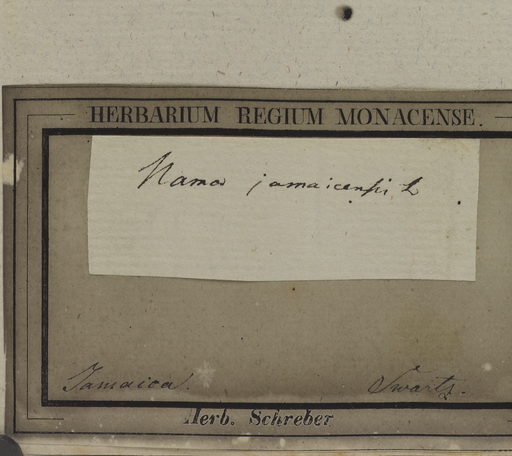 HERBARIUM REGIUM MONACENSE.
Nama jamaicensis L
Jamaica. Swartz.
Herb. Schreber